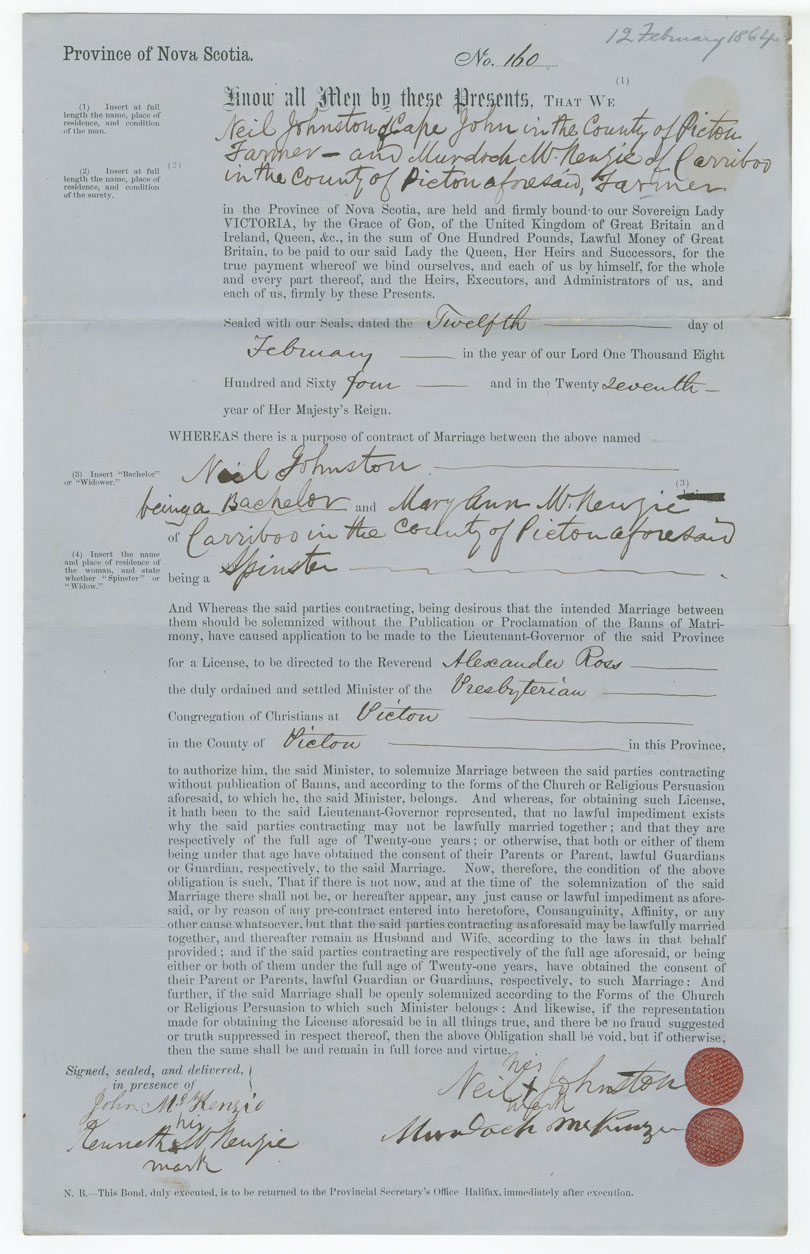 12 February 1864
Province of Nova Scotia.
No. 160
(1)
Know all Men by these Presents, THAT WE
(1) Insert at full
length the name, place of
residence, and condition
of the man.
Neil Johnston of Cape John in the County of Pictou
Farmer - and Murdoch McKenzie of Carriboo
(2) Insert at full
length the name, place of
residence, and condition
of the surety.
(2)
in the County of Pictou aforesaid, Farmer
in the Province of Nova Scotia, are held and firmly bound to our Sovereign Lady
VICTORIA, by the Grace of GOD, of the United Kingdom of Great Britain and
Ireland, Queen, &c., in the sum of One Hundred Pounds, Lawful Money of Great
Britain, to be paid to our said Lady the Queen, Her Heirs and Successors, for the
true payment whereof we bind ourselves, and each of us by himself, for the whole
and every part thereof, and the Heirs, Executors, and Administrators of us, and
each of us, firmly by these Presents.
Sealed with our Seals, dated the Twelfth day of
February in the year of our Lord One Thousand Eight
Hundred and Sixty four and in the Twenty seventh
year of Her Majesty's Reign.
WHEREAS there is a purpose of contract of Marriage between the above named
(3) Insert "Bachelor"
or "Widower."
Neil Johnston
(3)
being a Bachelor and Mary Ann McKenzie
of Carriboo in the County of Pictou aforesaid
(4) Insert the name
and place of residence of
the woman, and state
whether "Spinster" or
"Widow."
being a Spinster
And Whereas the said parties contracting, being desirous that the intended Marriage between
them should be solemnized without the Publication or Proclamation of the Banns of Matri-
mony, have caused application to be made to the Lieutenant-Governor of the said Province
for a License, to be directed to the Reverend Alexander Ross
the duly ordained and settled Minister of the Presbyterian
Congregation of Christians at Pictou
in the County of Pictou in this Province,
to authorize him, the said Minister, to solemnize Marriage between the said parties contracting
without publication of Banns, and according to the forms of the Church or Religious Persuasion
aforesaid, to which he, the said Minister, belongs. And whereas, for obtaining such License,
it hath been to the said Lieutenant-Governor represented, that no lawful impediment exists
why the said parties contracting may not be lawfully married together; and that they are
respectively of the full age of Twenty-one years; or otherwise, that both or either of them
being under that age have obtained the consent of their Parents or Parent, lawful Guardians
or Guardian, respectively, to the said Marriage. Now, therefore, the condition of the above
obligation is such, That if there is not now, and at the time of the solemnization of the said
Marriage there shall not be, or hereafter appear, any just cause or lawful impediment as afore-
said, or by reason of any pre-contract entered into heretofore, Consanguinity, Affinity, or any
other cause whatsoever, but that the said parties contracting as aforesaid may be lawfully married
together, and thereafter remain as Husband and Wife, according to the laws in that behalf
provided; and if the said parties contracting are respectively of the full age aforesaid, or being
either or both of them under the full age of Twenty-one years, have obtained the consent of
their Parent or Parents, lawful Guardian or Guardians, respectively, to such Marriage: And
further, if the said Marriage shall be openly solemnized according to the Forms of the Church
or Religious Persuasion to which such Minister belongs: And likewise, if the representation
made for obtaining the License aforesaid be in all things true, and there be no fraud suggested
or truth suppressed in respect thereof, then the above Obligation shall be void, but if otherwise,
then the same shall be and remain in full force and virtue.
Signed, sealed, and delivered,
in presence of
John McKenzie
his
Kenneth x McKenzie
mark
his
Neil x Johnston
mark
Murdoch McKenzie
N. B.—This Bond, duly executed, is to be returned to the Provincial Secretary's Office Halifax, immediately after execution.